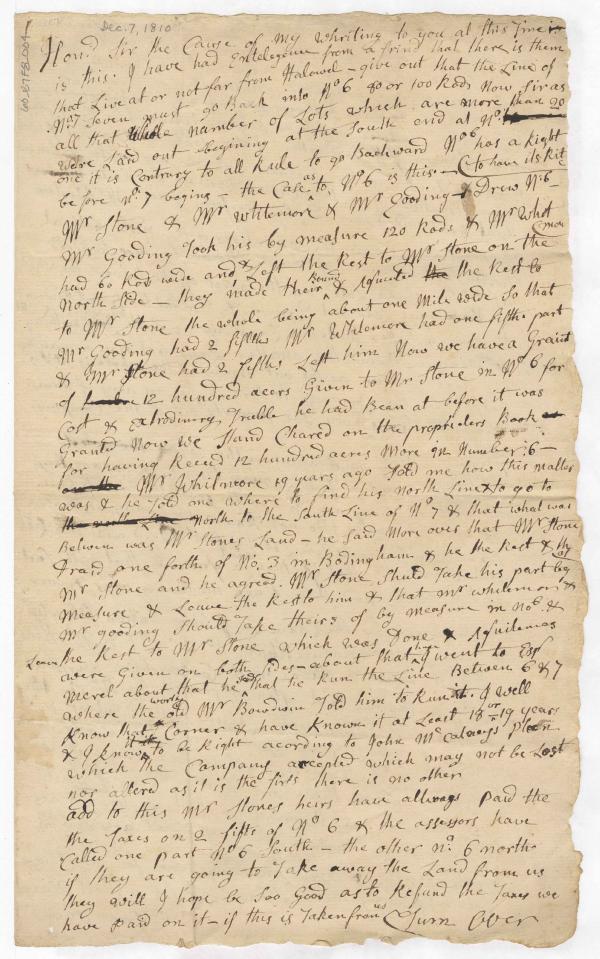 Dec. 7, 1810
Hond Sir the Cause of my Whriting to you at this time is
is this. I have had Entelegence from a frind that there is them
that Live at or not far from Halowel - give out that the Line of
No 7 Seven must go Back into No 6 80 or 100 Rods Now Sir as
all that whole number of Lots which are more than 20
were Laid out begining at the South end at No
one it is Contrary to all Rule to go Backward No 6 has a Right
before No. 7 begins - the Case as to No 6 is this - to have its Rite
Mr Stone & Mr Whitemore & Mr Gooding - Drew No 6 -
Mr Gooding Took his by measure 120 Rods & Mr Whit
more
had 60 Rods wide and Left the Rest to Mr Stone on the
North Side - they made their Bound & Aquited the Rest to
to Mr Stone the whole being about one Mile wide So that
Mr Gooding had 2 fifths Mr Whitemore had one fifths part
& Mr Stone had 2 fifths Left him Now we have a Graint
of 12 hundred acers Given to Mr Stone in No 6 for
Cost & Extrodinery Truble he had Bean at before it was
Granted Now we Stand Chared on the proprieders Book
for having Receid 12 hundred acres More in Number: 6 -
Mr Whitmore 19 years ago Told me how this matter
was & he Told me where to find his north Line & to go to
the north Line North to the South Line of No 7 & that what was
Between was Mr Stones Land - he said More over that Mr Stone
Draid one forth of No. 3 in Bodingham & he the Rest &
Mr Stone and he agreed. Mr Stone Shuld Take his part by
Measure & Leave the Rest to him & that mr whitemore &
Mr gooding Should Take theirs of by measure in No 6 &
Leave the Rest to Mr Stone which was Done & Aquitemas
were Given on both Sides - about that time I went to Esqr
Merel about that he sed That he Run the Line Between 6 & 7
where the old Mr Bowdwin Told him to Run it. I well
worthy
Know that Corner & have Known it at Least 18 or 19 years
& I know it to be Right acording to John Mc calneys plan
which the Company accepted which may not be Lost
nor altered as it is the first there is no other
add to this Mr Stones heirs have allways paid the
the Taxes on 2 fifts of No 6 & the assessors have
Called one part No 6 South - the other no. 6 north
if they are going to Take away the Land from us
they will I hope be Soo Good as to Refund the Taxes we
have paid on it - if this is Taken from us Turn Over